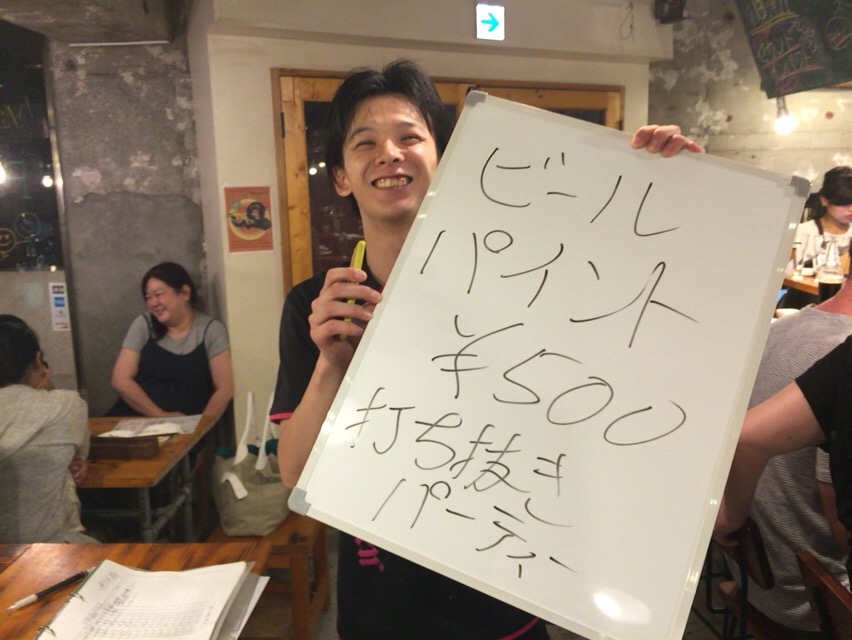 ビール
パイント
¥500
打ち抜き
パーティー